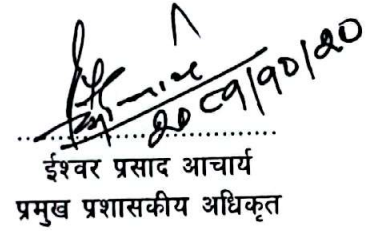 २०८१/१०/२०
ईश्वर प्रसाद आचार्य
प्रमुख प्रशासकीय अधिकृत